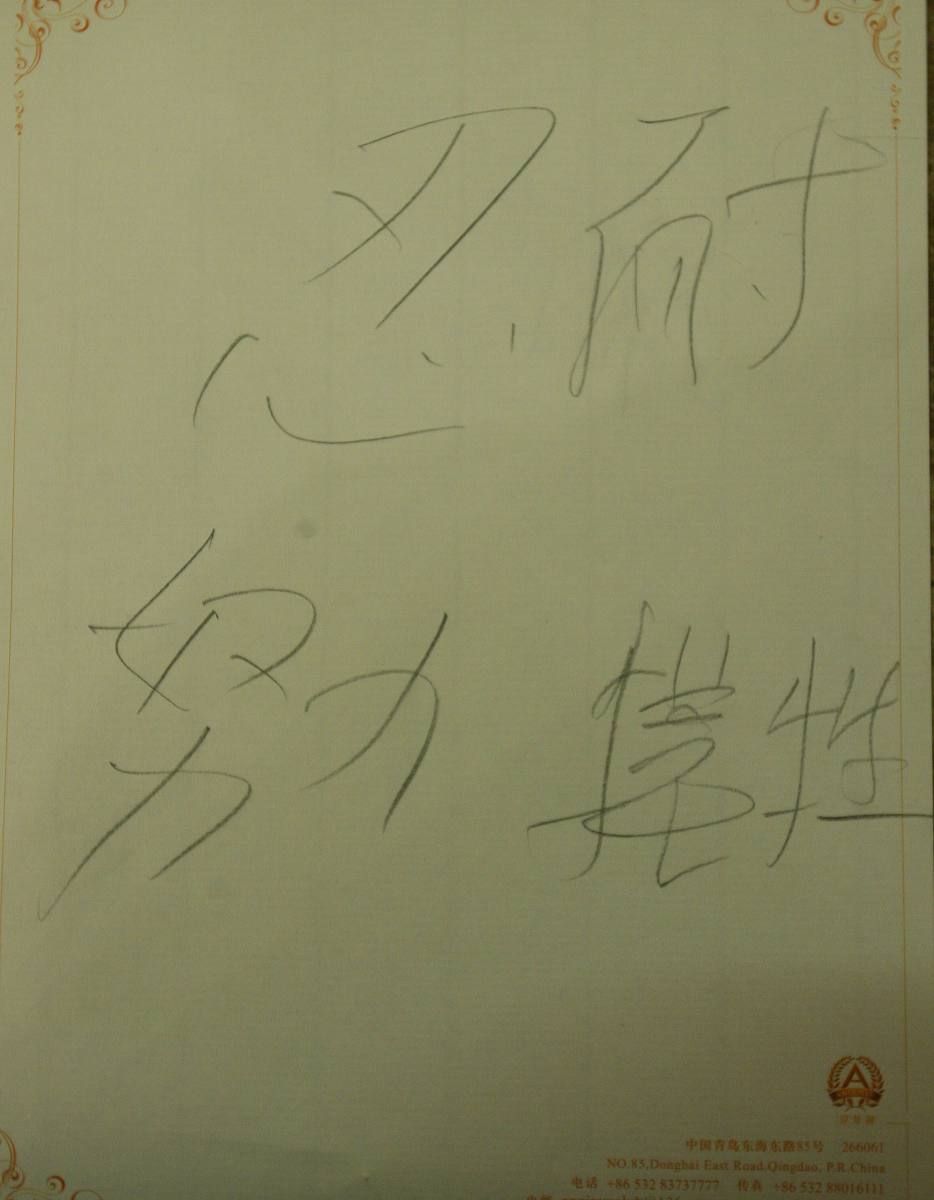 忍耐
努力 犠牲
A
中国青岛东海东路85号 266061
NO.85,Donghai East Road,Qingdao, P.R.China
电话 +86 532 83737777 传真 +86 532 88016111